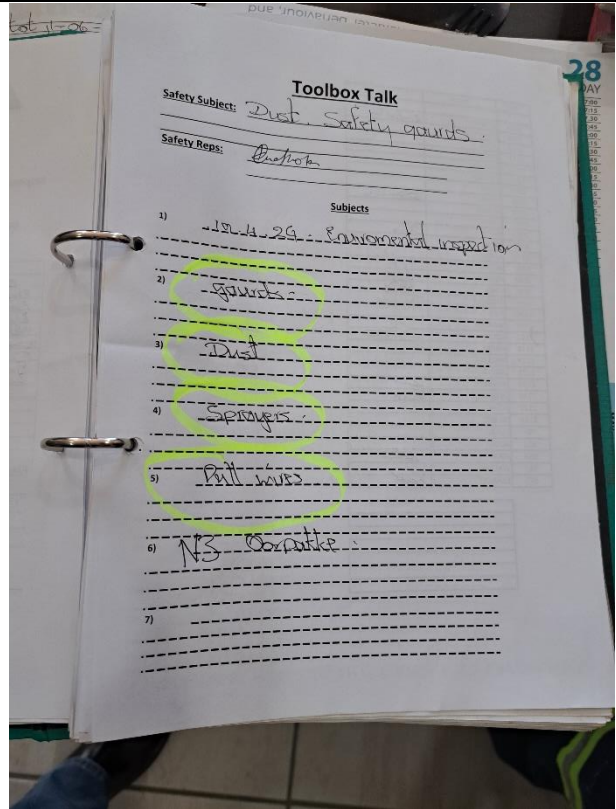 Toolbox Talk
Safety Subject: Dust. Safety gaurds.
Safety Reps:
Subjects
1) 18.4.24. Enviromental inspection
2) gaurds.
3) Dust
4) Sprayers.
5) Pull wires
6) N3
7)
28
DAY